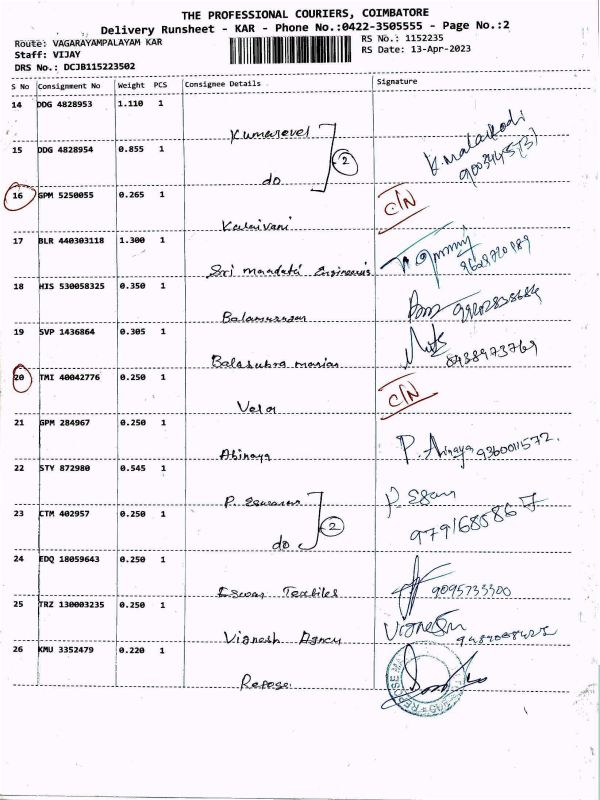 THE PROFESSIONAL COURIERS, COIMBATORE
Delivery Runsheet - KAR - Phone No.:0422-3505555 - Page No.:2
Route: VAGARAYAMPALAYAM KAR
RS No.: 1152235
Staff: VIJAY
RS Date: 13-Apr-2023
DRS No.: DCJB115223502
S No Consignment No Weight PCS Consignee Details Signature
14 DDG 4828953 1.110 1
Kumaravel
15 DDG 4828954 0.855 1
do
2
16 GPM 5250055 0.265 1
C/N
Kalaivani
17 BLR 440303118 1.300 1
Sri Engineering
18 HIS 530058325 0.350 1
Balamurugan
19 SVP 1436864 0.305 1
8438973769
Balasubra manian
20 TMI 40042776 0.250 1
C/N
Velar
21 GPM 284967 0.250 1
P. Abinaya 9360011572.
Abinaya
22 STY 872980 0.545 1
P. Eswaran
23 CTM 402957 0.250 1
9791685867
do
2
24 EDQ 18059643 0.250 1
9095733300
Eswar Textiles
25 TRZ 130003235 0.250 1
Vignesh
Vignesh Agncy
26 KMU 3352479 0.220 1
Repose